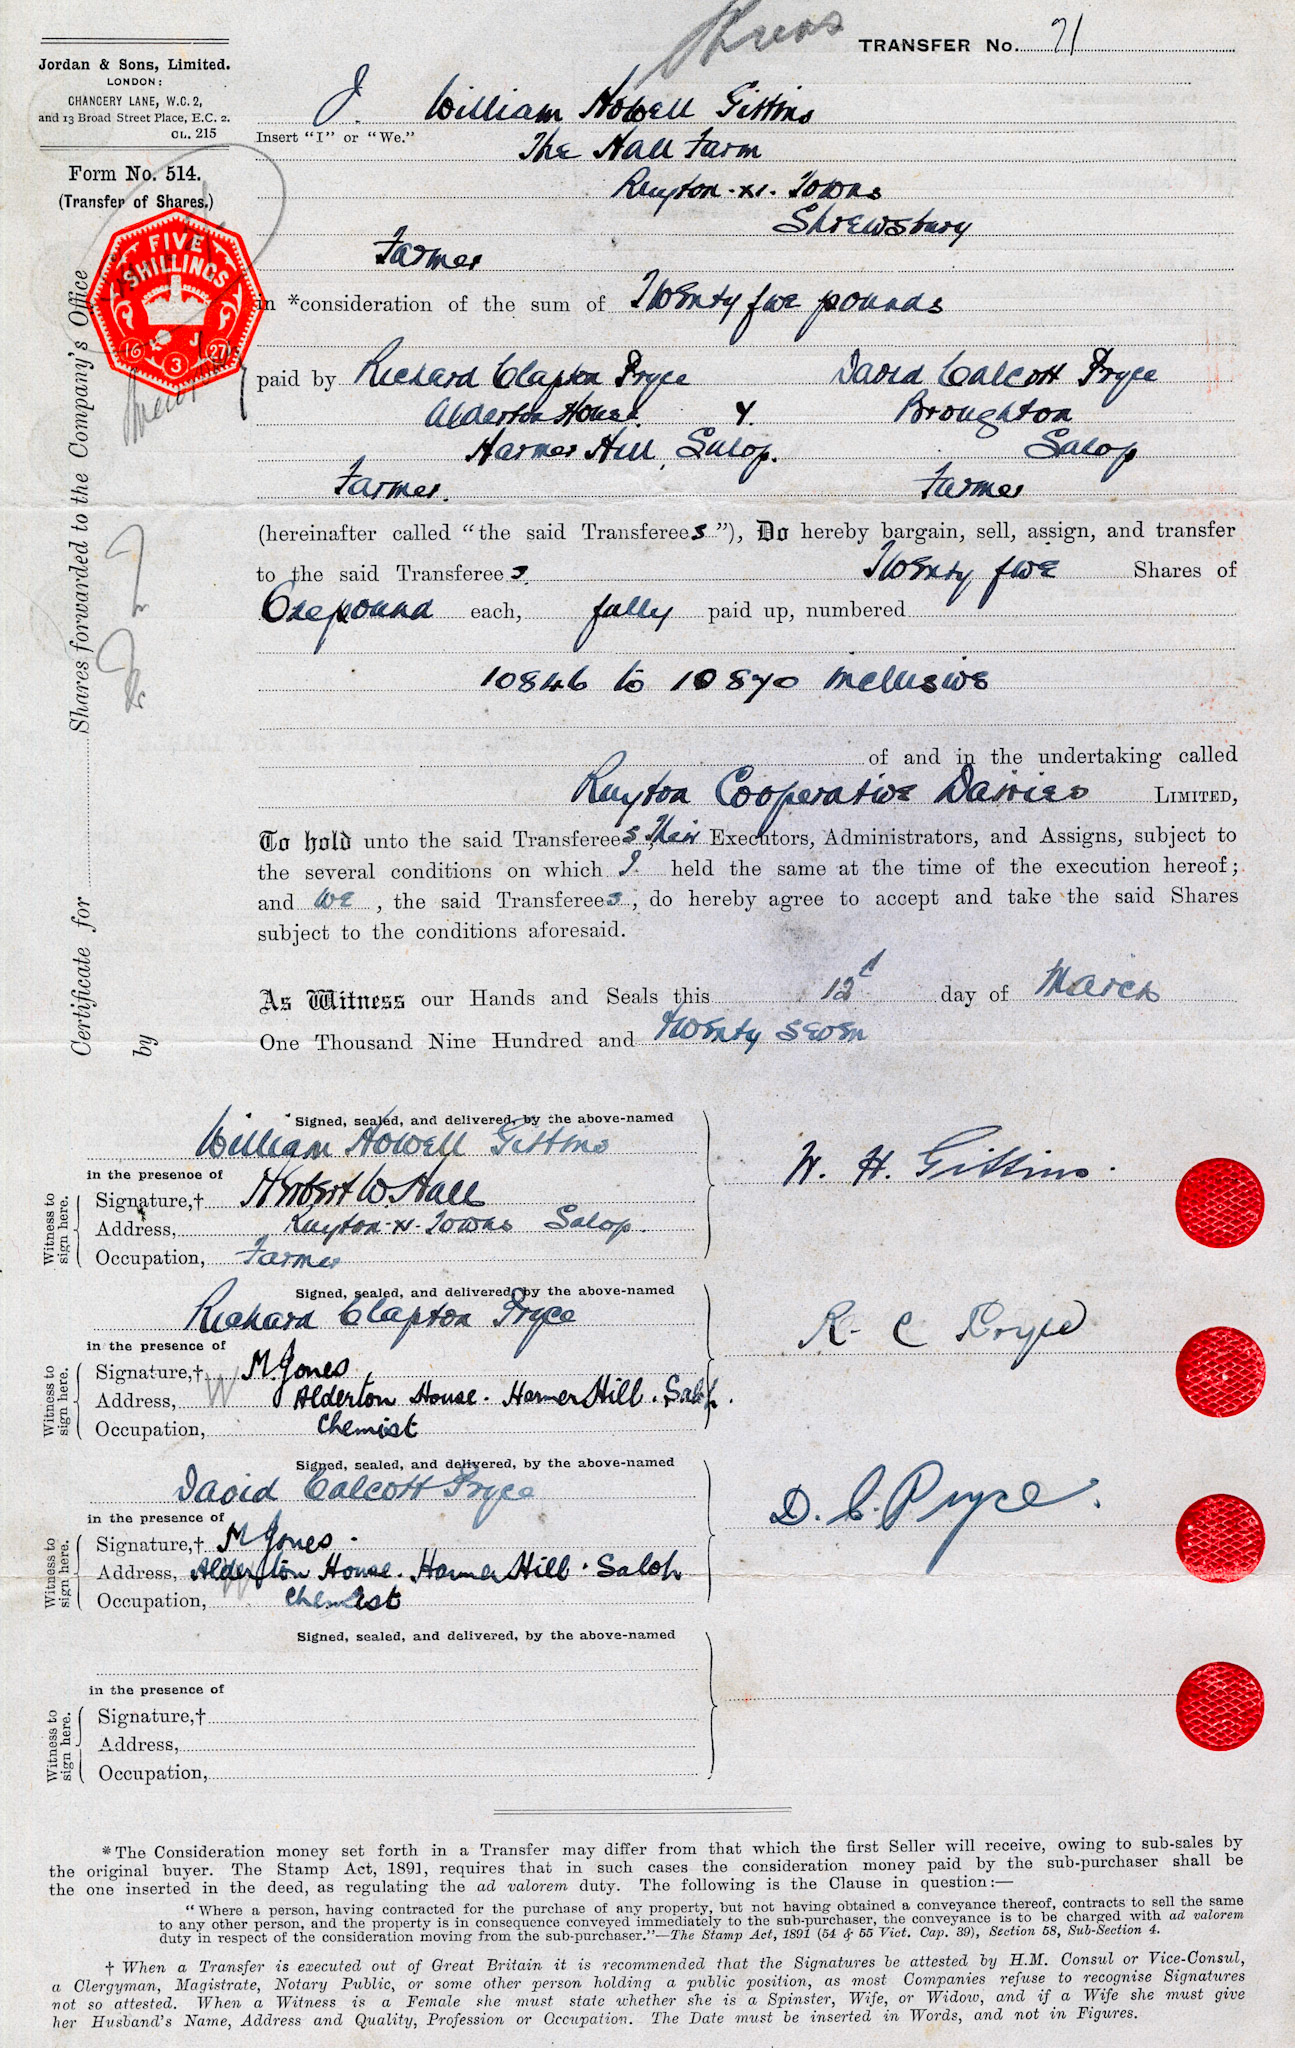 TRANSFER No. 71
Jordan & Sons, Limited.
LONDON:
CHANCERY LANE, W.C. 2,
and 13 Broad Street Place, E.C. 2.
CL. 215
Form No. 514.
(Transfer of Shares.)
FIVE SHILLINGS
J
16 3 27
I William Howell Gittins
Insert "I" or "We."
The Hall Farm
Ruyton-XI-Towns
Shrewsbury
Farmer
in *consideration of the sum of Twenty five pounds
paid by Richard Clapton Pryce David Calcott Pryce
Alderton House. & Broughton
Harmer Hill, Salop. Salop
Farmer. Farmer
(hereinafter called "the said Transferees"), Do hereby bargain, sell, assign, and transfer
to the said Transferees Twenty five Shares of
One pound each, fully paid up, numbered
10846 to 10870 inclusive
of and in the undertaking called
Ruyton Cooperative Dairies LIMITED,
To hold unto the said Transferees, their Executors, Administrators, and Assigns, subject to
the several conditions on which I held the same at the time of the execution hereof;
and we, the said Transferees, do hereby agree to accept and take the said Shares
subject to the conditions aforesaid.
As Witness our Hands and Seals this 12th day of March
One Thousand Nine Hundred and twenty seven
Certificate for Shares forwarded to the Company's Office
by
Signed, sealed, and delivered, by the above-named
William Howell Gittins
in the presence of
Witness to sign here.
Signature,† Herbert W. Hall
Address, Ruyton-XI-Towns Salop.
Occupation, Farmer
W. H. Gittins.
Signed, sealed, and delivered, by the above-named
Richard Clapton Pryce
in the presence of
Witness to sign here.
Signature,† M Jones
Address, Alderton House. Harmer Hill. Salop.
Occupation, Chemist
R. C Pryce
Signed, sealed, and delivered, by the above-named
David Calcott Pryce
in the presence of
Witness to sign here.
Signature,† M Jones.
Address, Alderton House. Harmer Hill. Salop
Occupation, Chemist
D. C. Pryce.
Signed, sealed, and delivered, by the above-named
in the presence of
Witness to sign here.
Signature,†
Address,
Occupation,
*The Consideration money set forth in a Transfer may differ from that which the first Seller will receive, owing to sub-sales by
the original buyer. The Stamp Act, 1891, requires that in such cases the consideration money paid by the sub-purchaser shall be
the one inserted in the deed, as regulating the ad valorem duty. The following is the Clause in question:—
"Where a person, having contracted for the purchase of any property, but not having obtained a conveyance thereof, contracts to sell the same
to any other person, and the property is in consequence conveyed immediately to the sub-purchaser, the conveyance is to be charged with ad valorem
duty in respect of the consideration moving from the sub-purchaser."—The Stamp Act, 1891 (54 & 55 Vict. Cap. 39), Section 58, Sub-Section 4.
† When a Transfer is executed out of Great Britain it is recommended that the Signatures be attested by H.M. Consul or Vice-Consul,
a Clergyman, Magistrate, Notary Public, or some other person holding a public position, as most Companies refuse to recognise Signatures
not so attested. When a Witness is a Female she must state whether she is a Spinster, Wife, or Widow, and if a Wife she must give
her Husband's Name, Address and Quality, Profession or Occupation. The Date must be inserted in Words, and not in Figures.